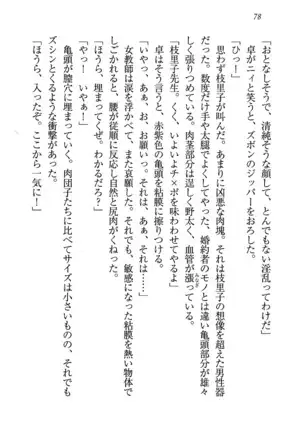 78
「おとなしそうで、清純そうな顔して、とんでもない淫乱ってわけだ」
卓がニィと笑うと、ズボンのジッパーをおろした。
「ひっ！」
思わず枝里子が叫んだ。あまりに凶悪な肉塊。それは枝里子の想像を超えた男性器
だった。数度だけ手や太腿でよくしてやった、婚約者のモノとは違い亀頭部分が雄々
しく張りつめている。肉茎部分は逞しく野太く、血管が漲っている。
「枝里子先生。くく、いよいよチ×ポを味わわせてやるよ」
「いやっ、あぁ、お、お願いっ。それは、あぁ、それは……」
卓は そう言うと、赤紫色の亀頭を粘膜に擦りつける。
女教師は涙を浮かべて、また哀願した。でも、敏感になった粘膜を熱い物体で
しごかれると、腰が従順に反応し自然と尻肉がくねってしまう。
「ほうら、埋まってくぜ。わかるだろ？」
「やっ！　いやぁ！」
亀頭が膣穴に埋まってゆく。肉団子たちに比べてサイズは小さいものの、それでも
ズシンとするような衝撃があった。
「ほうら、入ったぞ。ここから一気に！」